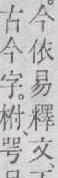 今依易釋文、
古今字。柎、咢